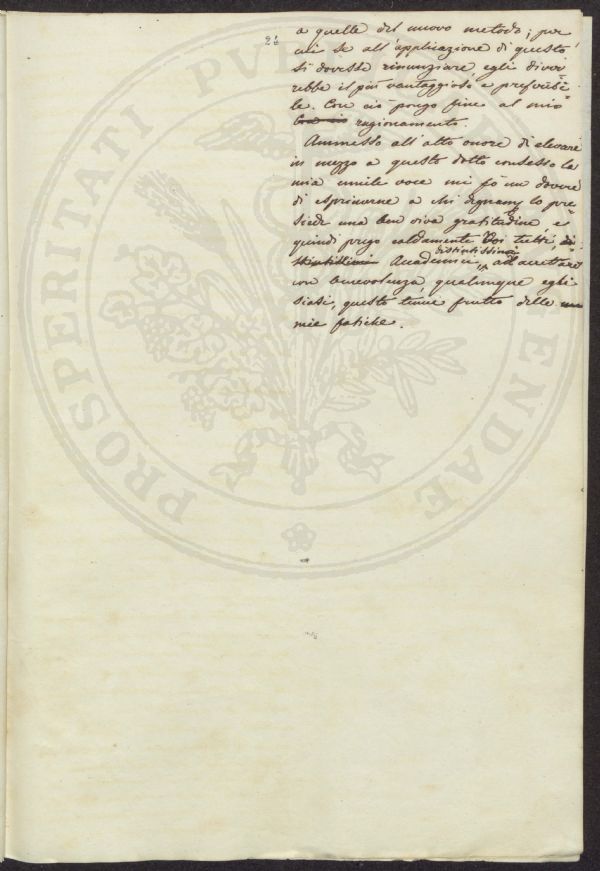 26
a quelle del nuovo metodo; per
cui se all'applicazione di questo
si dovesse rinunziare, egli diver=
rebbe il più vantaggioso e preferibi=
le. Con ciò pongo fine al mio
ragionamento.
Ammesso all'alto onore di elevare
in mezzo a questo dotto consesso la
mia umile voce mi fo un dovere
di esprimerne a chi degnam.e lo pre=
siede una ben viva gratitudine, e
quindi prego caldamente Voi tutti, di=
stintissimi Accademici, distintissimi ad accettare
con benevolenza, qualunque egli
siasi, questo tenue frutto delle
mie fatiche.
PROSPERITATI PUBLICAE AUGENDAE